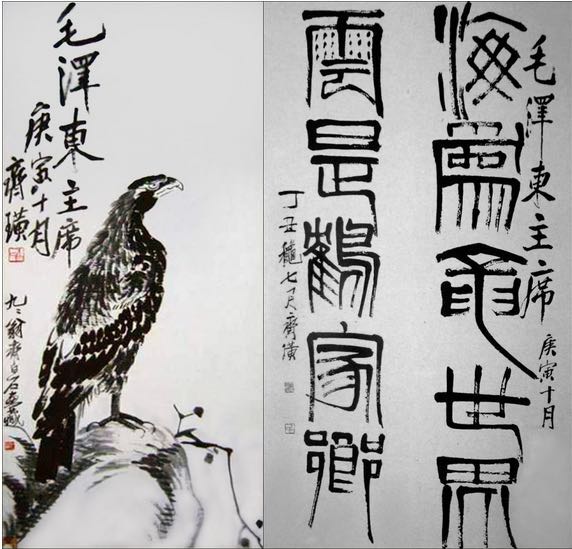 毛澤東主席
庚寅十月
齊璜
九二翁齊白石畫藏
毛澤東主席
庚寅十月
海為龍世界
雲是鶴家鄉
丁丑穐七月齊璜